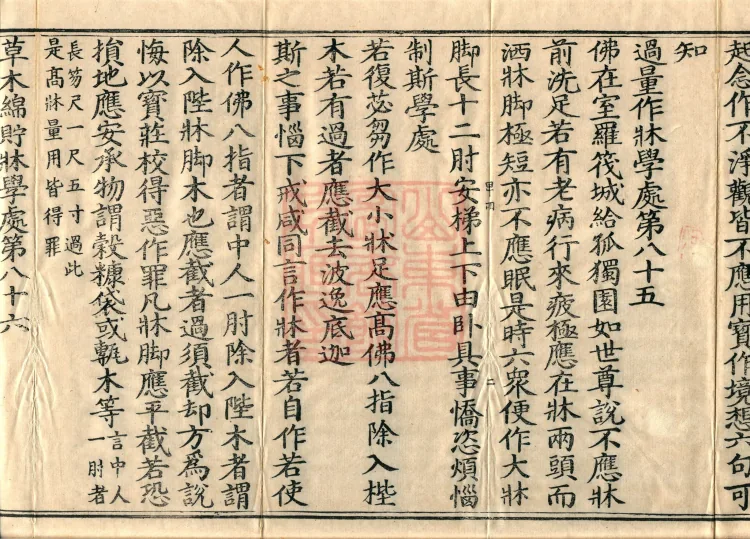 起念作不淨觀皆不應用寶作境想六句可
知
過量作牀學處第八十五
佛在室羅筏城給孤獨園如世尊說不應牀
前洗足若有老病行來疲極應在牀兩頭而
洒牀脚極短亦不應眠是時六衆便作大牀
脚長十二肘安梯上下由卧具事憍恣煩惱
制斯學處
若復苾芻作大小牀足應高佛八指除入梐
木若有過者應截去波逸底迦
斯之事惱下戒咸同言作牀者若自作若使
人作佛八指者謂中人一肘除入陛木者謂
除入陛牀脚木也應截者過須截却方爲說
悔以寶莊校得惡作罪凡牀脚應平截若恐
損地應安承物謂糓糠袋或甎木等言中人一肘者
長笏尺一尺五寸過此
是高牀量用皆得罪
草木綿貯牀學處第八十六